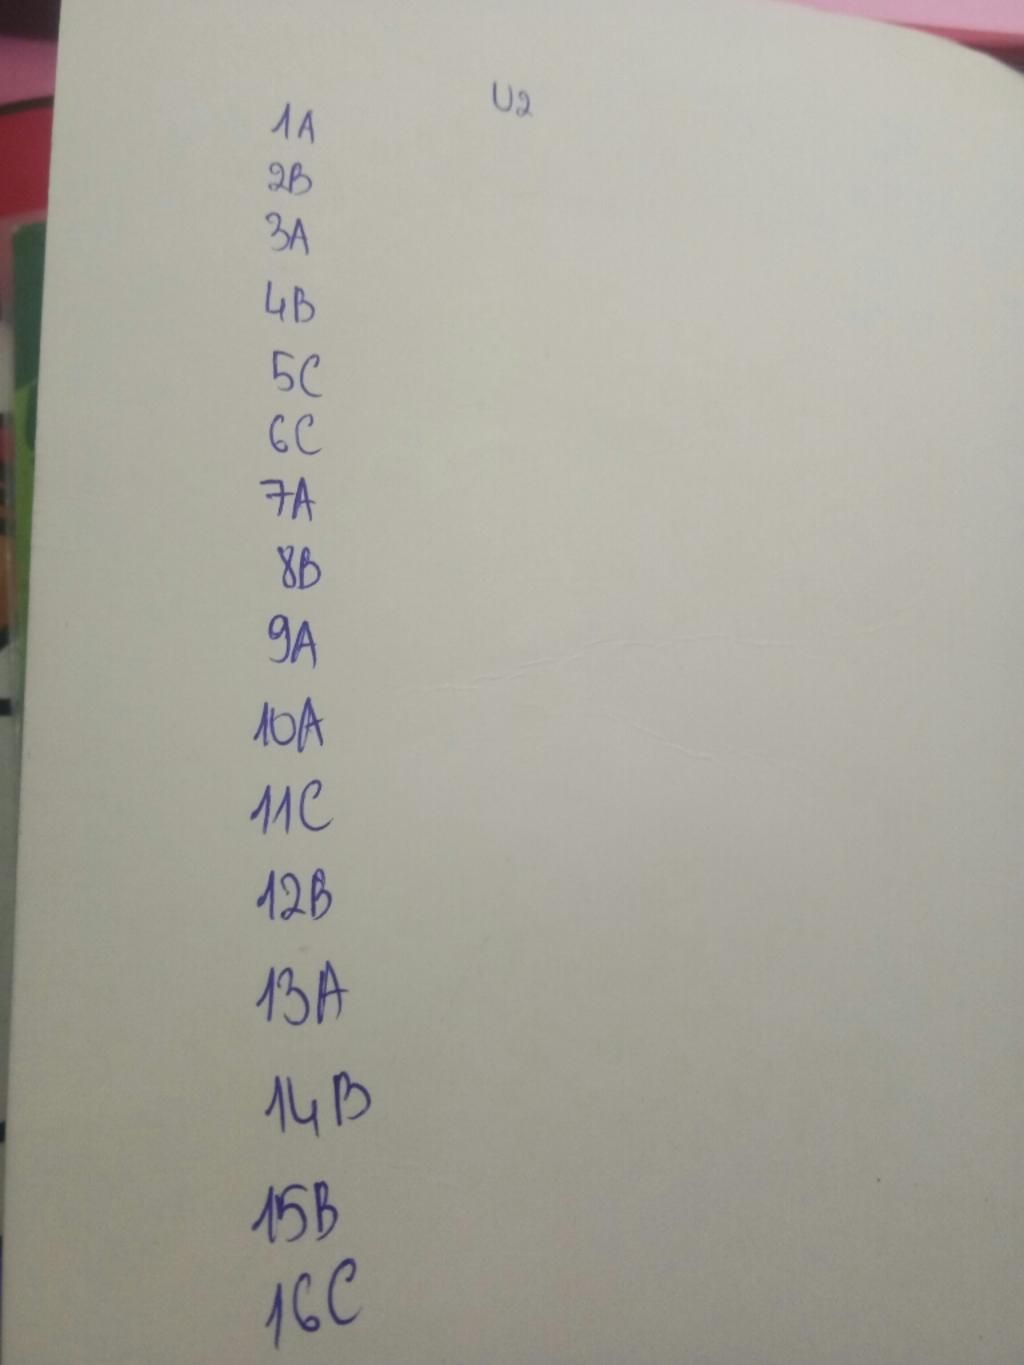 U2
1A
2B
3A
4B
5C
6C
7A
8B
9A
10A
11C
12B
13A
14B
15B
16C